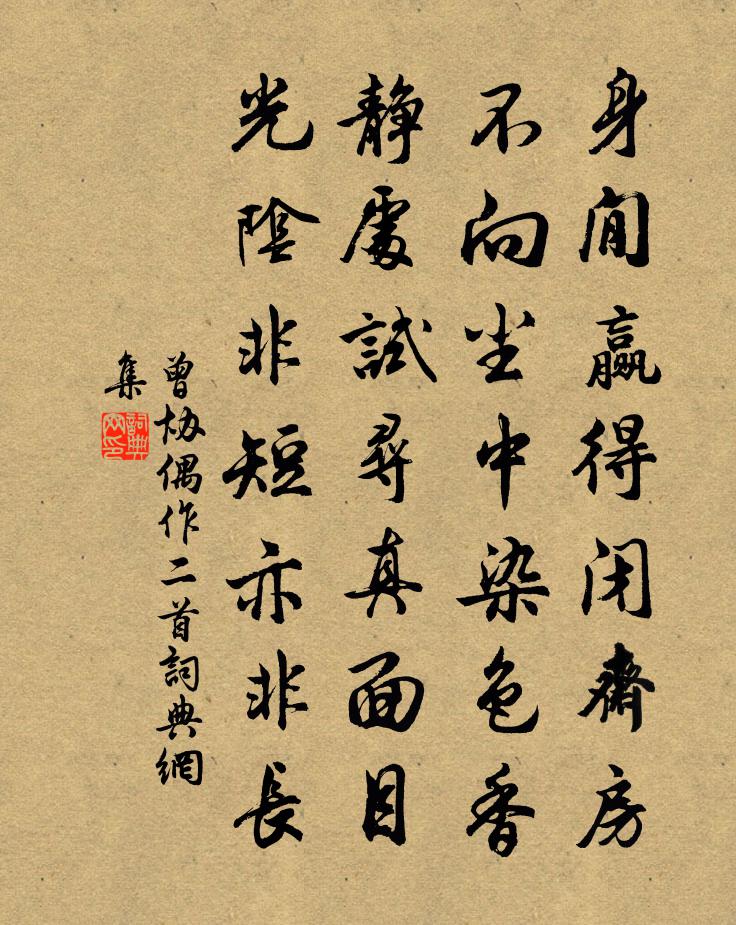 身閒贏得閉齋房
不向尘中染色香
靜處試尋真面目
光陰非短亦非長
曾协偶作二首詞典網
集
詞典網印